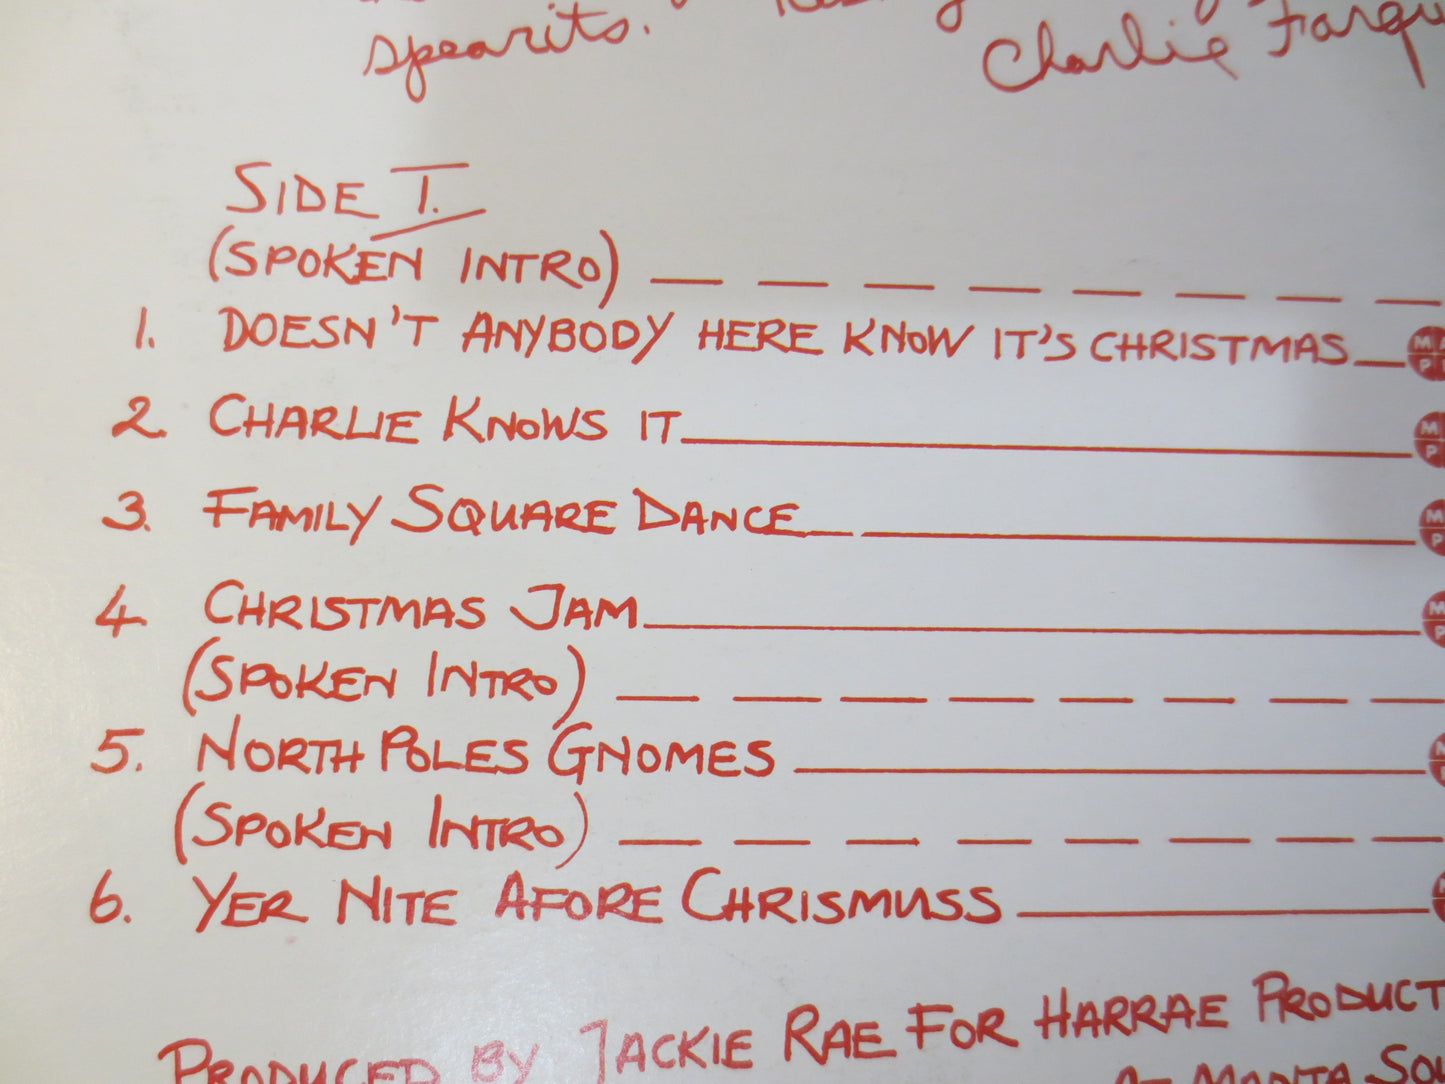 spearits.
Charlie Farqu
SIDE I.
(SPOKEN INTRO)
1. DOESN'T ANYBODY HERE KNOW IT'S CHRISTMAS
2. CHARLIE KNOWS IT
3. FAMILY SQUARE DANCE
4. CHRISTMAS JAM
(SPOKEN INTRO)
5. NORTH POLES GNOMES
(SPOKEN INTRO)
6. YER NITE AFORE CHRISMUSS
PRODUCED BY JACKIE RAE FOR HARRAE PRODUCT
AT MANTA SOU